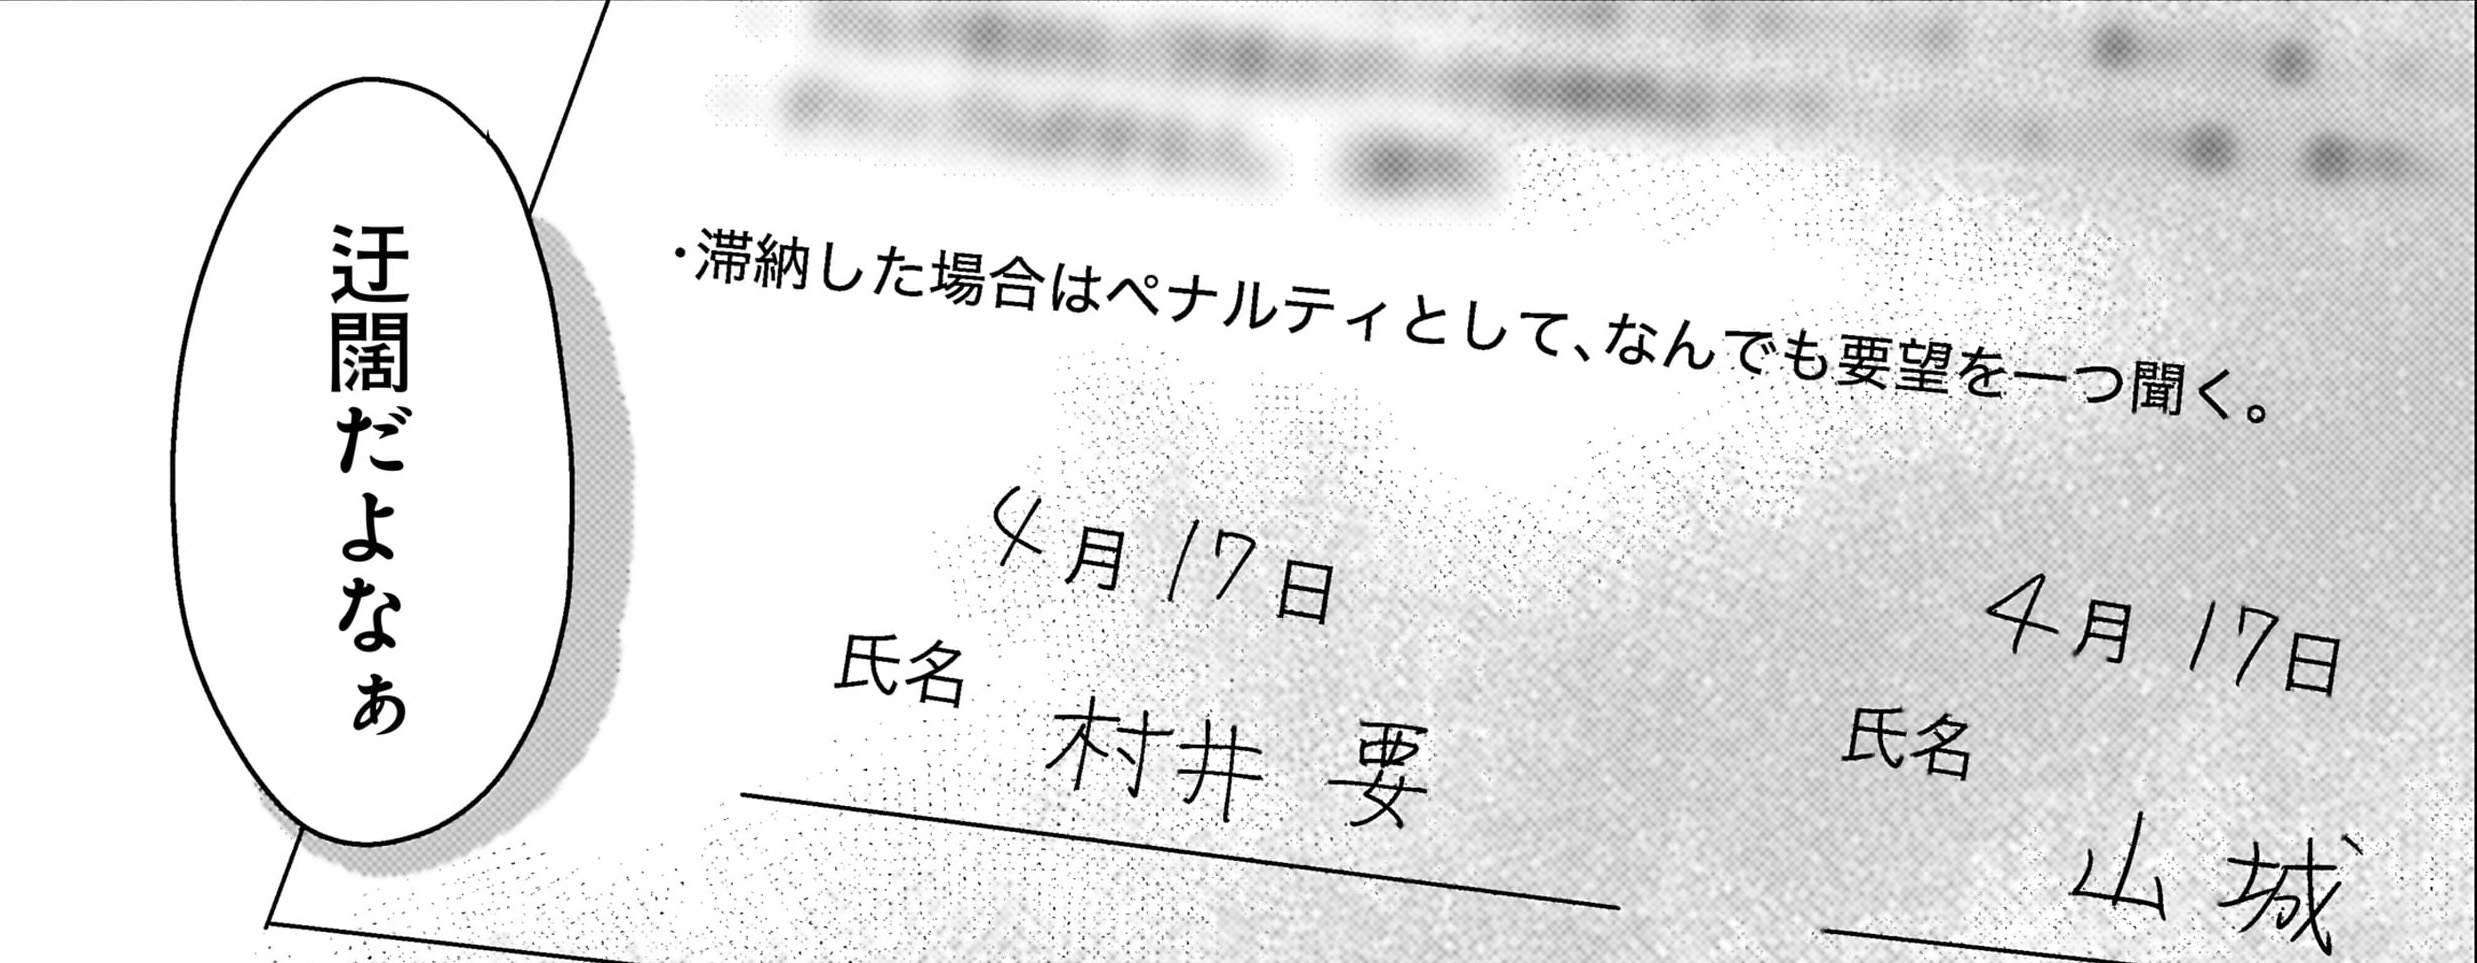 ・滞納した場合はペナルティとして、なんでも要望を一つ聞く。
4月17日
氏名
村井 要
4月17日
氏名
山城
迂闊だよなぁ